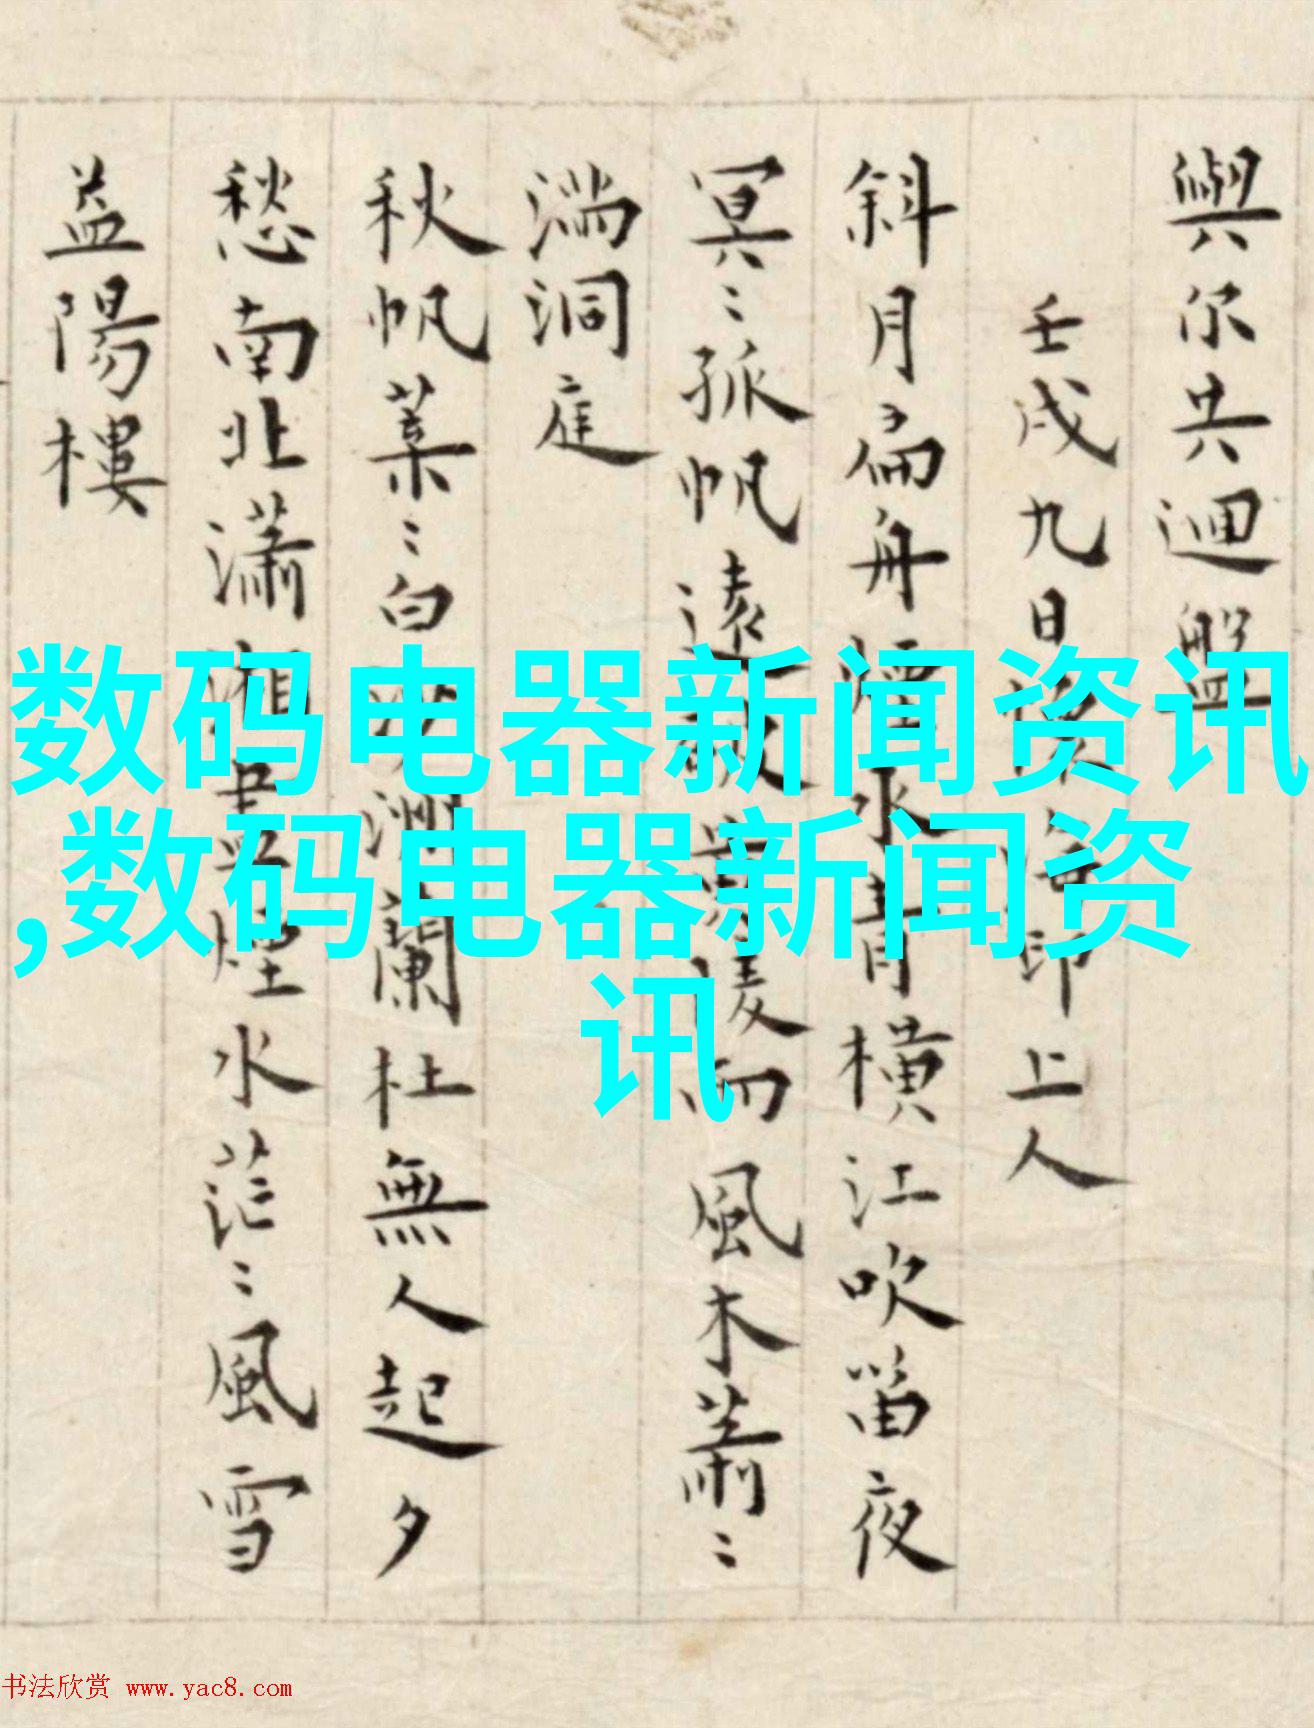 與尔共迴盤
壬戌九日懷上人
斜月扁舟煙水青橫江吹笛夜
冥〻孤帆遠風木蕭〻
湍洞庭
秋帆葉〻白洲蘭杜無人起夕
愁南北瀟湘書煙水茫〻風雪
益陽樓
数码电器新闻资讯
,数码电器新闻资
讯
书法欣赏 www.yac8.com